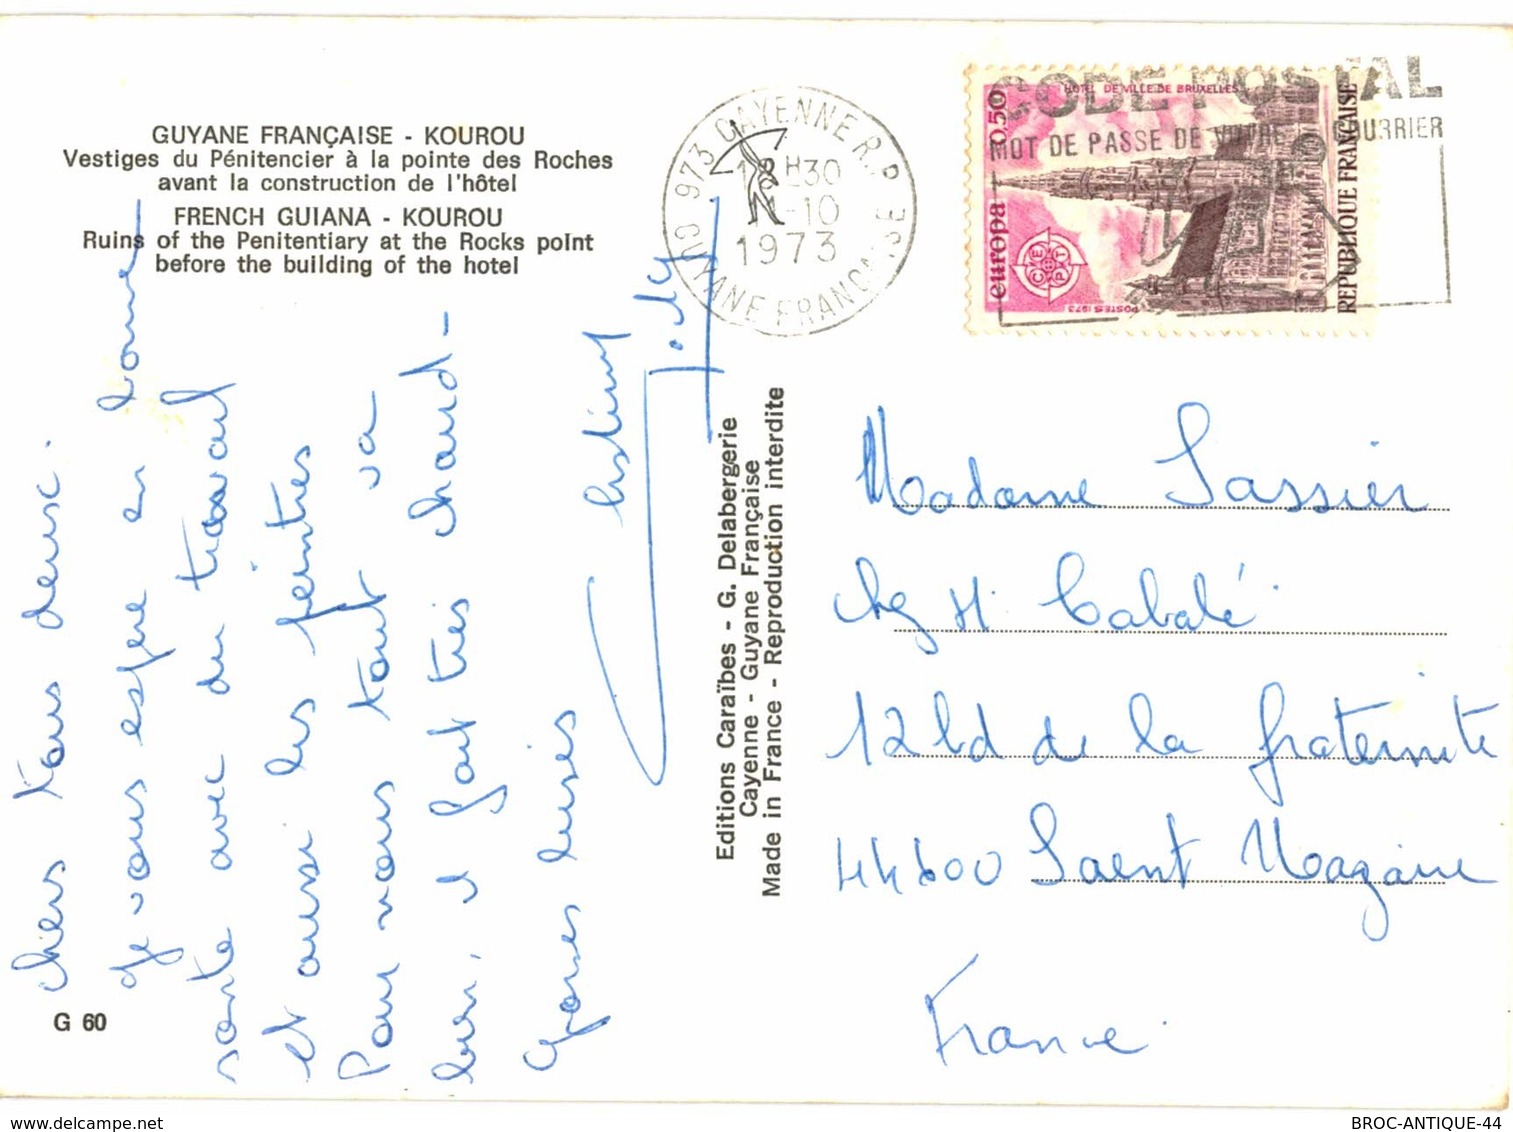 GUYANE FRANÇAISE - KOUROU
Vestiges du Pénitencier à la pointe des Roches
avant la construction de l'hôtel
FRENCH GUIANA - KOUROU
Ruins of the Penitentiary at the Rocks point
before the building of the hotel
Chers tous deux.
Je vous espère en bonne
santé avec du travail
et aussi les peintres
Pour nous tout va
bien, il fait très chaud -
Grosses bises
G 60
Editions Caraïbes - G. Delabergerie
Cayenne - Guyane Française
Made in France - Reproduction interdite
973 CAYENNE R.P.
18H30
-10
1973
GUYANE FRANÇAISE
CODE POSTAL
MOT DE PASSE DE VOTRE COURRIER
HOTEL DE VILLE DE BRUXELLES
0.50
europa
CEPT
POSTES 1973
REPUBLIQUE FRANÇAISE
Madame Lassier
chez M. Cabalé
12 bd de la fraternité
44600 Saint Nazaire
France
delcampe.net
BROC-ANTIQUE-44